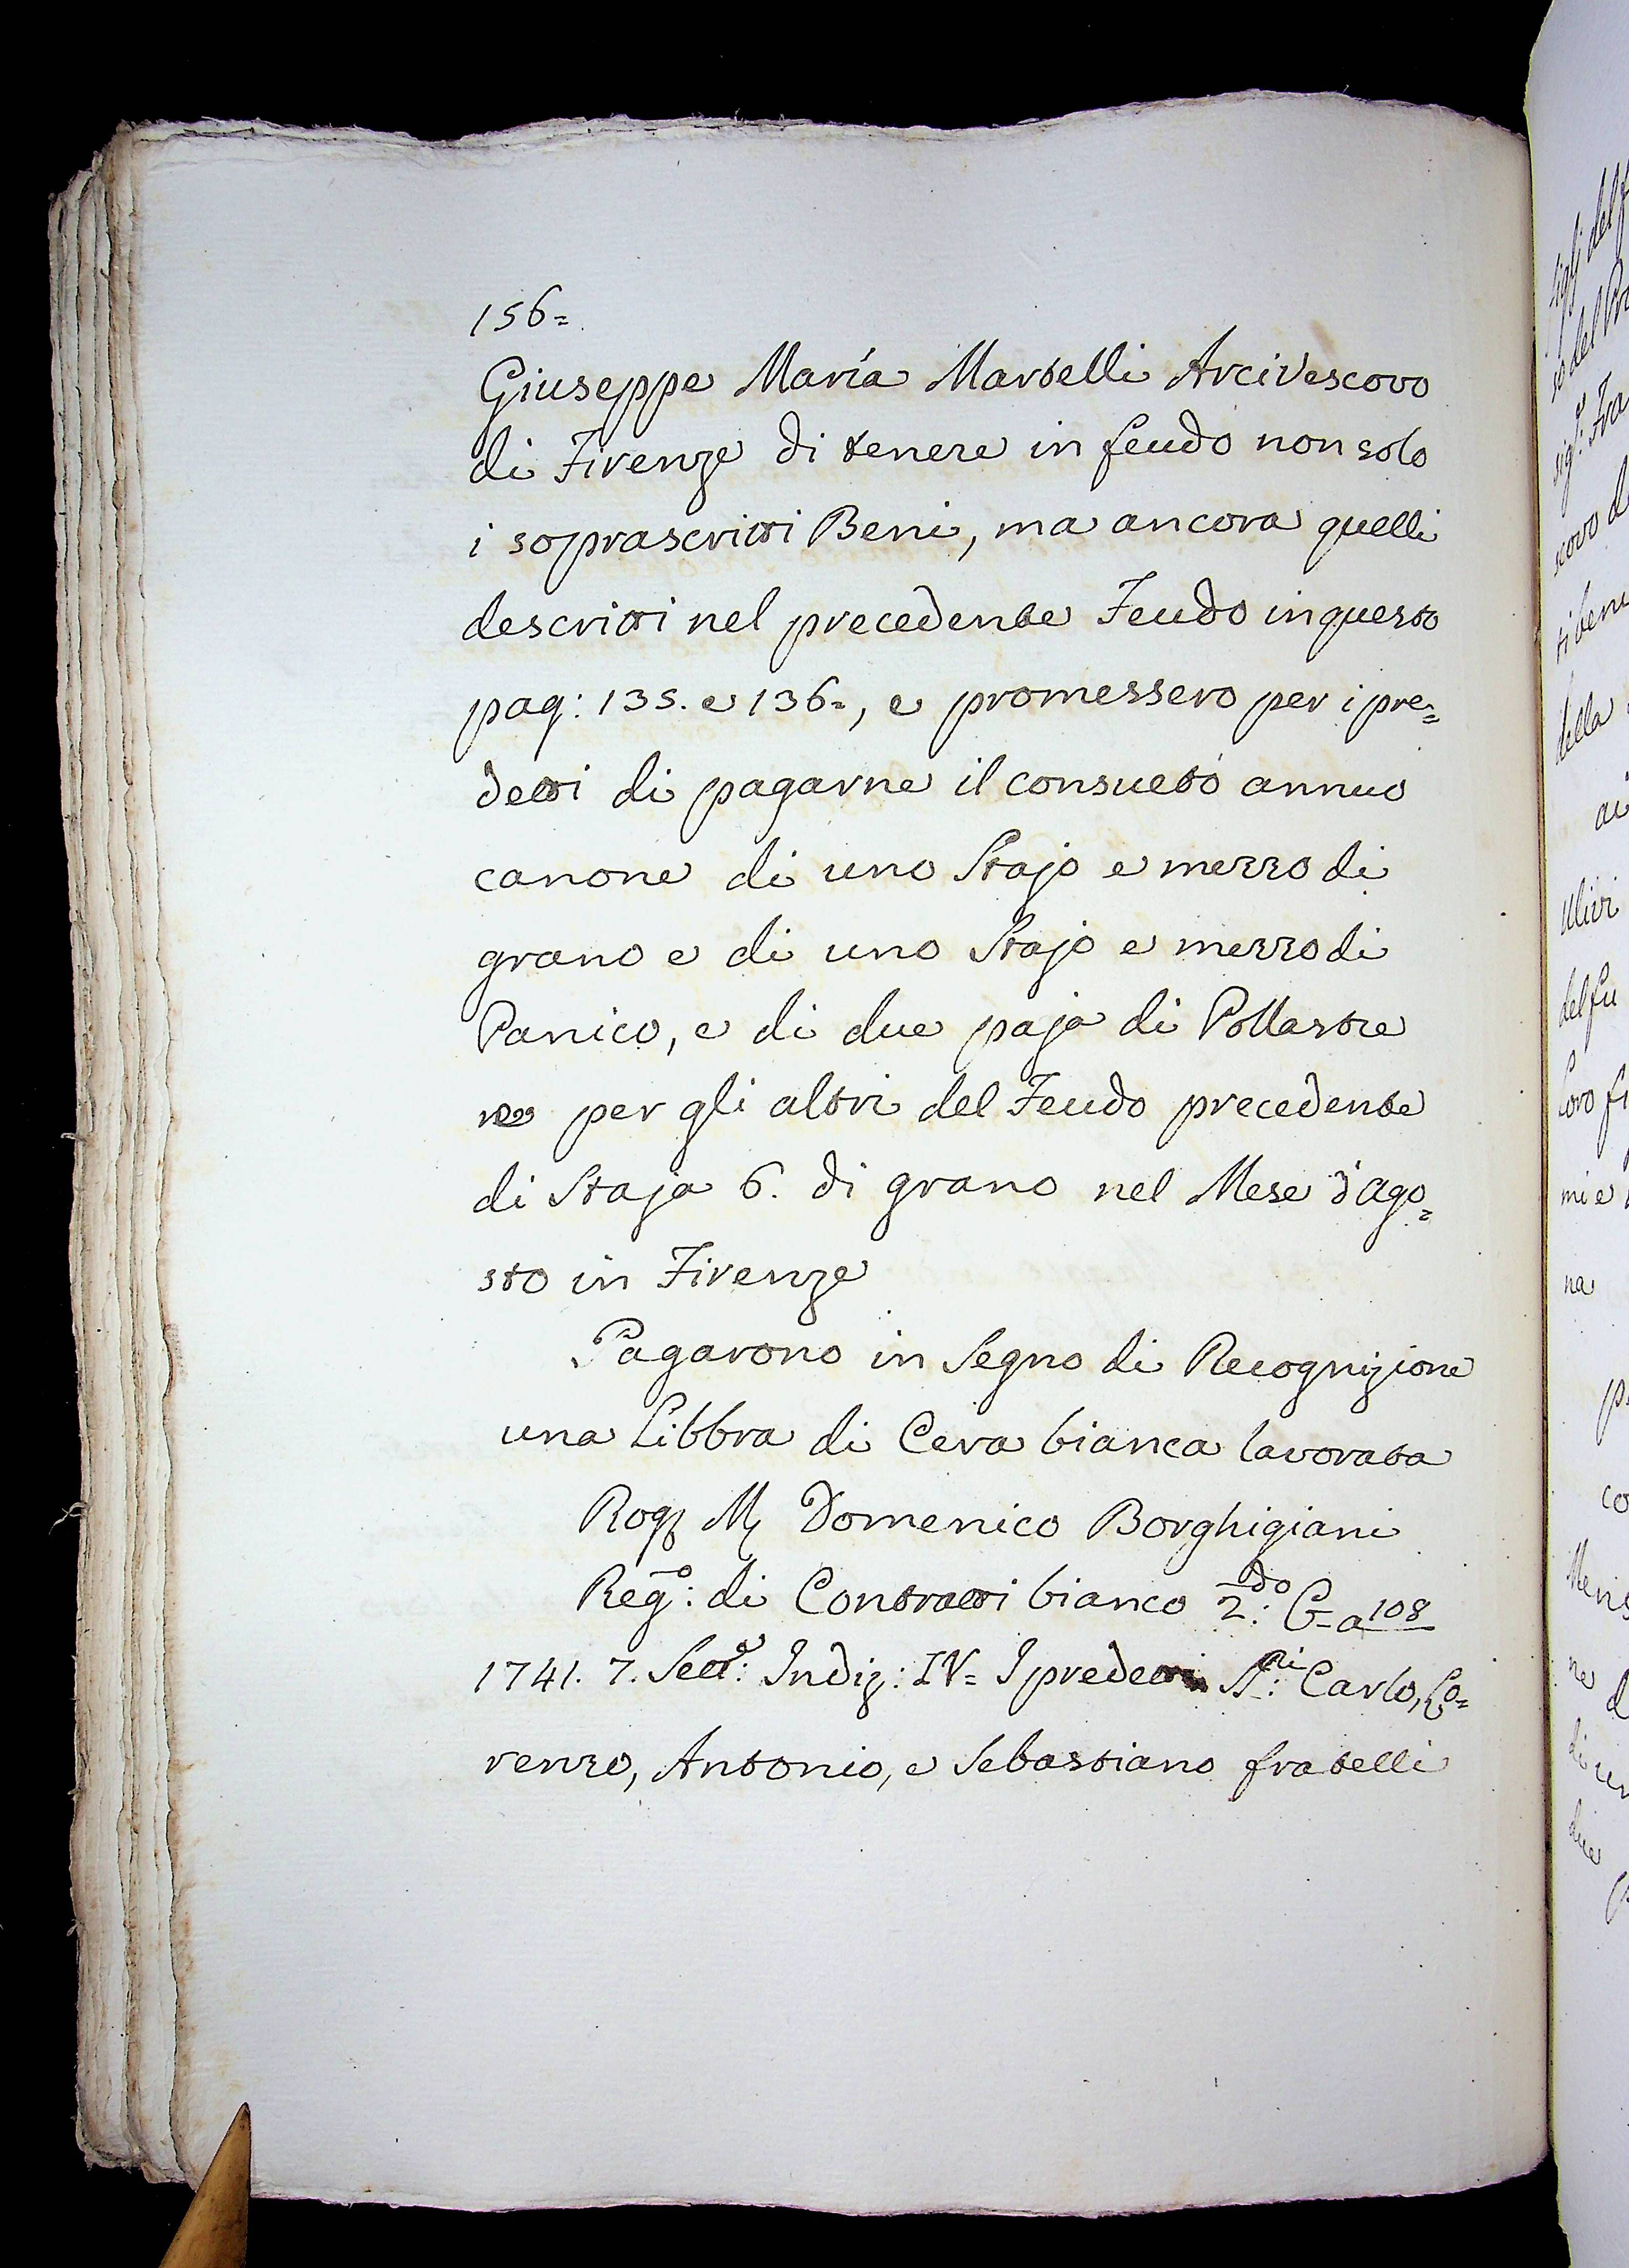 156=
Giuseppe María Martelli Arcivescovo
di Firenze di tenere in feudo non solo
i soprascritti Beni, ma ancora quelli
descritti nel precedente Feudo in questo
pag: 135. e 136=, e promessero per i pre=
detti di pagarne il consueto annuo
canone di uno Stajo e mezzo di
grano e di uno Stajo e mezzo di
Panico, e di due paja di Pollastre
per gli altri del Feudo precedente
di Staja 6. di grano nel Mese d'Ago=
sto in Firenze
Pagarono in Segno di Recognizione
una Libbra di Cera bianca lavorata
Rog. M. Domenico Borghigiani
Reg.o: di Contratti bianco 2.do: C= a 108
1741. 7. Sett.e: Indiz: IV= I predetti SS.ri: Carlo, Lo=
renzo, Antonio, e Sebastiano fratelli
della
ai
Ulivi
del fu
loro
mi e
na